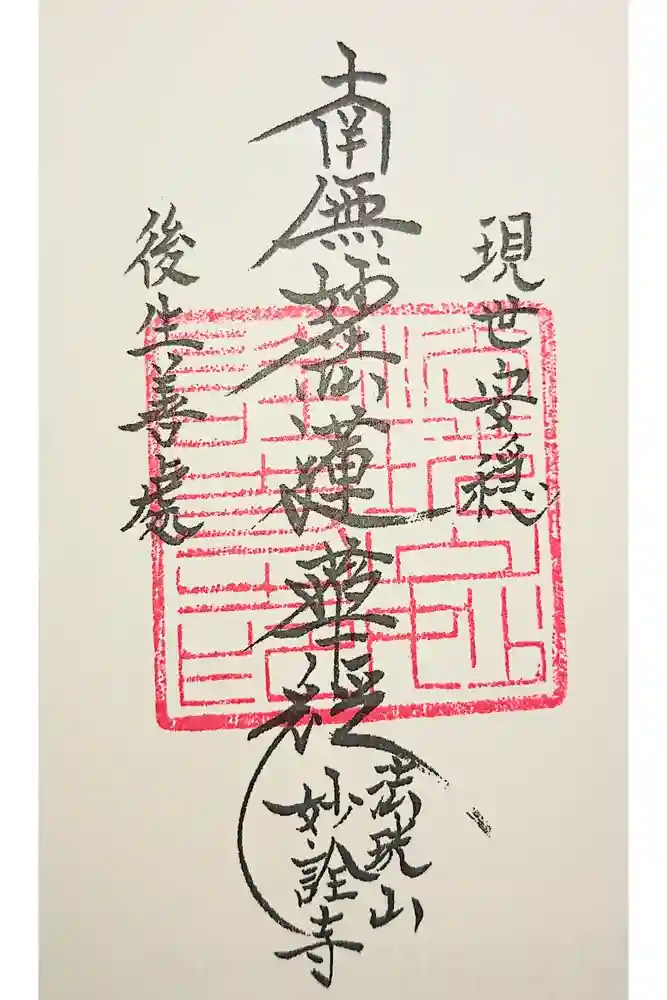 現世安穏
南無妙法蓮華経
後生善處
法珖山
妙詮寺